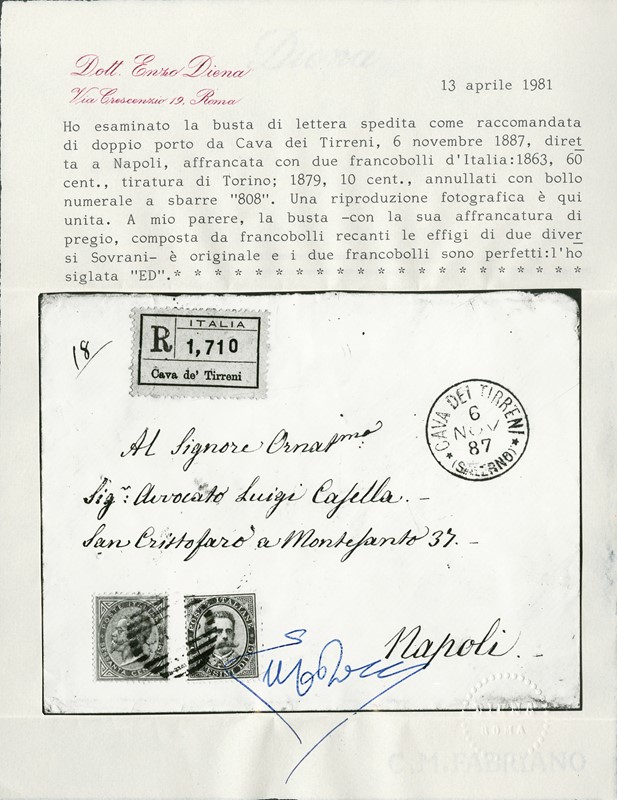 Dott. Enzo Diena
Via Crescenzio 19, Roma
13 aprile 1981
Ho esaminato la busta di lettera spedita come raccomandata
di doppio porto da Cava dei Tirreni, 6 novembre 1887, diret
ta a Napoli, affrancata con due francobolli d'Italia:1863, 60
cent., tiratura di Torino; 1879, 10 cent., annullati con bollo
numerale a sbarre "808". Una riproduzione fotografica è qui
unita. A mio parere, la busta -con la sua affrancatura di
pregio, composta da francobolli recanti le effigi di due diver
si Sovrani- è originale e i due francobolli sono perfetti:l'ho
siglata "ED".* * * * * * * * * * * * * * * * * * *
18/
ITALIA
R 1,710
Cava de' Tirreni
CAVA DEI TIRRENI
6
NOV
87
(SALERNO)
Al Signore Ornatmo
Sigr: Avvocato Luigi Casella. -
San Cristofaro a Montesanto 37. -
Napoli. -
DIENA
ROMA
C.M.FABRIANO